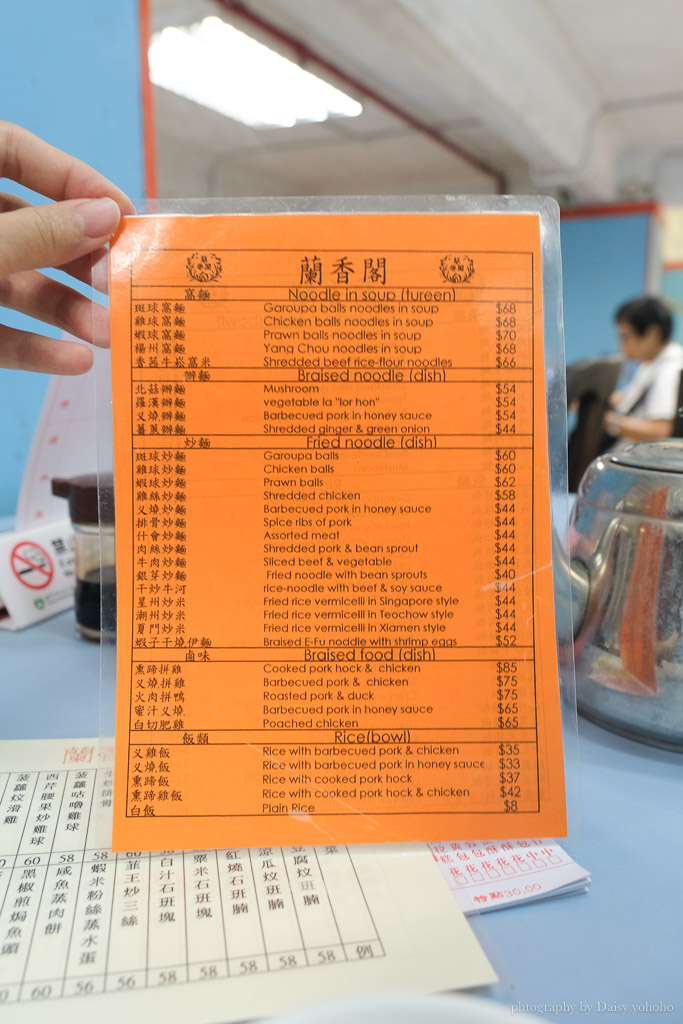 蘭香閣
窩麵 Noodle in soup (tureen)
斑球窩麵 Garoupa balls noodles in soup $68
雞球窩麵 Chicken balls noodles in soup $68
蝦球窩麵 Prawn balls noodles in soup $70
楊州窩麵 Yang Chou noodles in soup $68
香茜牛崧窩米 Shredded beef rice-flour noodles $66
辦麵 Braised noodle (dish)
北菇辦麵 Mushroom $54
羅漢辦麵 vegetable la "lor hon" $54
义燒辦麵 Barbecued pork in honey sauce $54
薑蔥辦麵 Shredded ginger & green onion $44
炒麵 Fried noodle (dish)
斑球炒麵 Garoupa balls $60
雞球炒麵 Chicken balls $60
蝦球炒麵 Prawn balls $62
雞絲炒麵 Shredded chicken $58
义燒炒麵 Barbecued pork in honey sauce $44
排骨炒麵 Spice ribs of pork $44
什會炒麵 Assorted meat $44
肉絲炒麵 Shredded pork & bean sprout $44
牛肉炒麵 Sliced beef & vegetable $44
銀芽炒麵 Fried noodle with bean sprouts $40
干炒牛河 rice-noodle with beef & soy sauce $44
星州炒米 Fried rice vermicelli in Singapore style $44
潮州炒米 Fried rice vermicelli in Teochow style $44
夏門炒米 Fried rice vermicelli in Xiamen style $44
蝦子干燒伊麵 Braised E-Fu noddle with shrimp eggs $52
鹵味 Braised food (dish)
熏蹄拼雞 Cooked pork hock & chicken $85
义燒拼雞 Barbecued pork & chicken $75
火肉拼鴨 Roasted pork & duck $75
蜜汁义燒 Barbecued pork in honey sauce $65
白切肥雞 Poached chicken $65
飯類 Rice(bowl)
义雞飯 Rice with barbecued pork & chicken $35
义燒飯 Rice with barbecued pork in honey sauce $33
熏蹄飯 Rice with cooked pork hock $37
熏蹄雞飯 Rice with cooked pork hock & chicken $42
白飯 Plain Rice $8
禁
蘭
菠蘿炆滑雞
西芹腰果炒雞球
菠蘿咕嚕雞球
60 58 58 60 58 58 58
黑椒煎焗魚頭
咸魚蒸肉餅
蝦米粉絲蒸水蛋
韮王炒三絲
白汁石班塊
粟米石班塊
紅燒石班腩
涼瓜炆班腩
豆腐炆班腩
例
60 56 56 58 58 58 58 58
特點30.00
phtography by Daisy yohoho